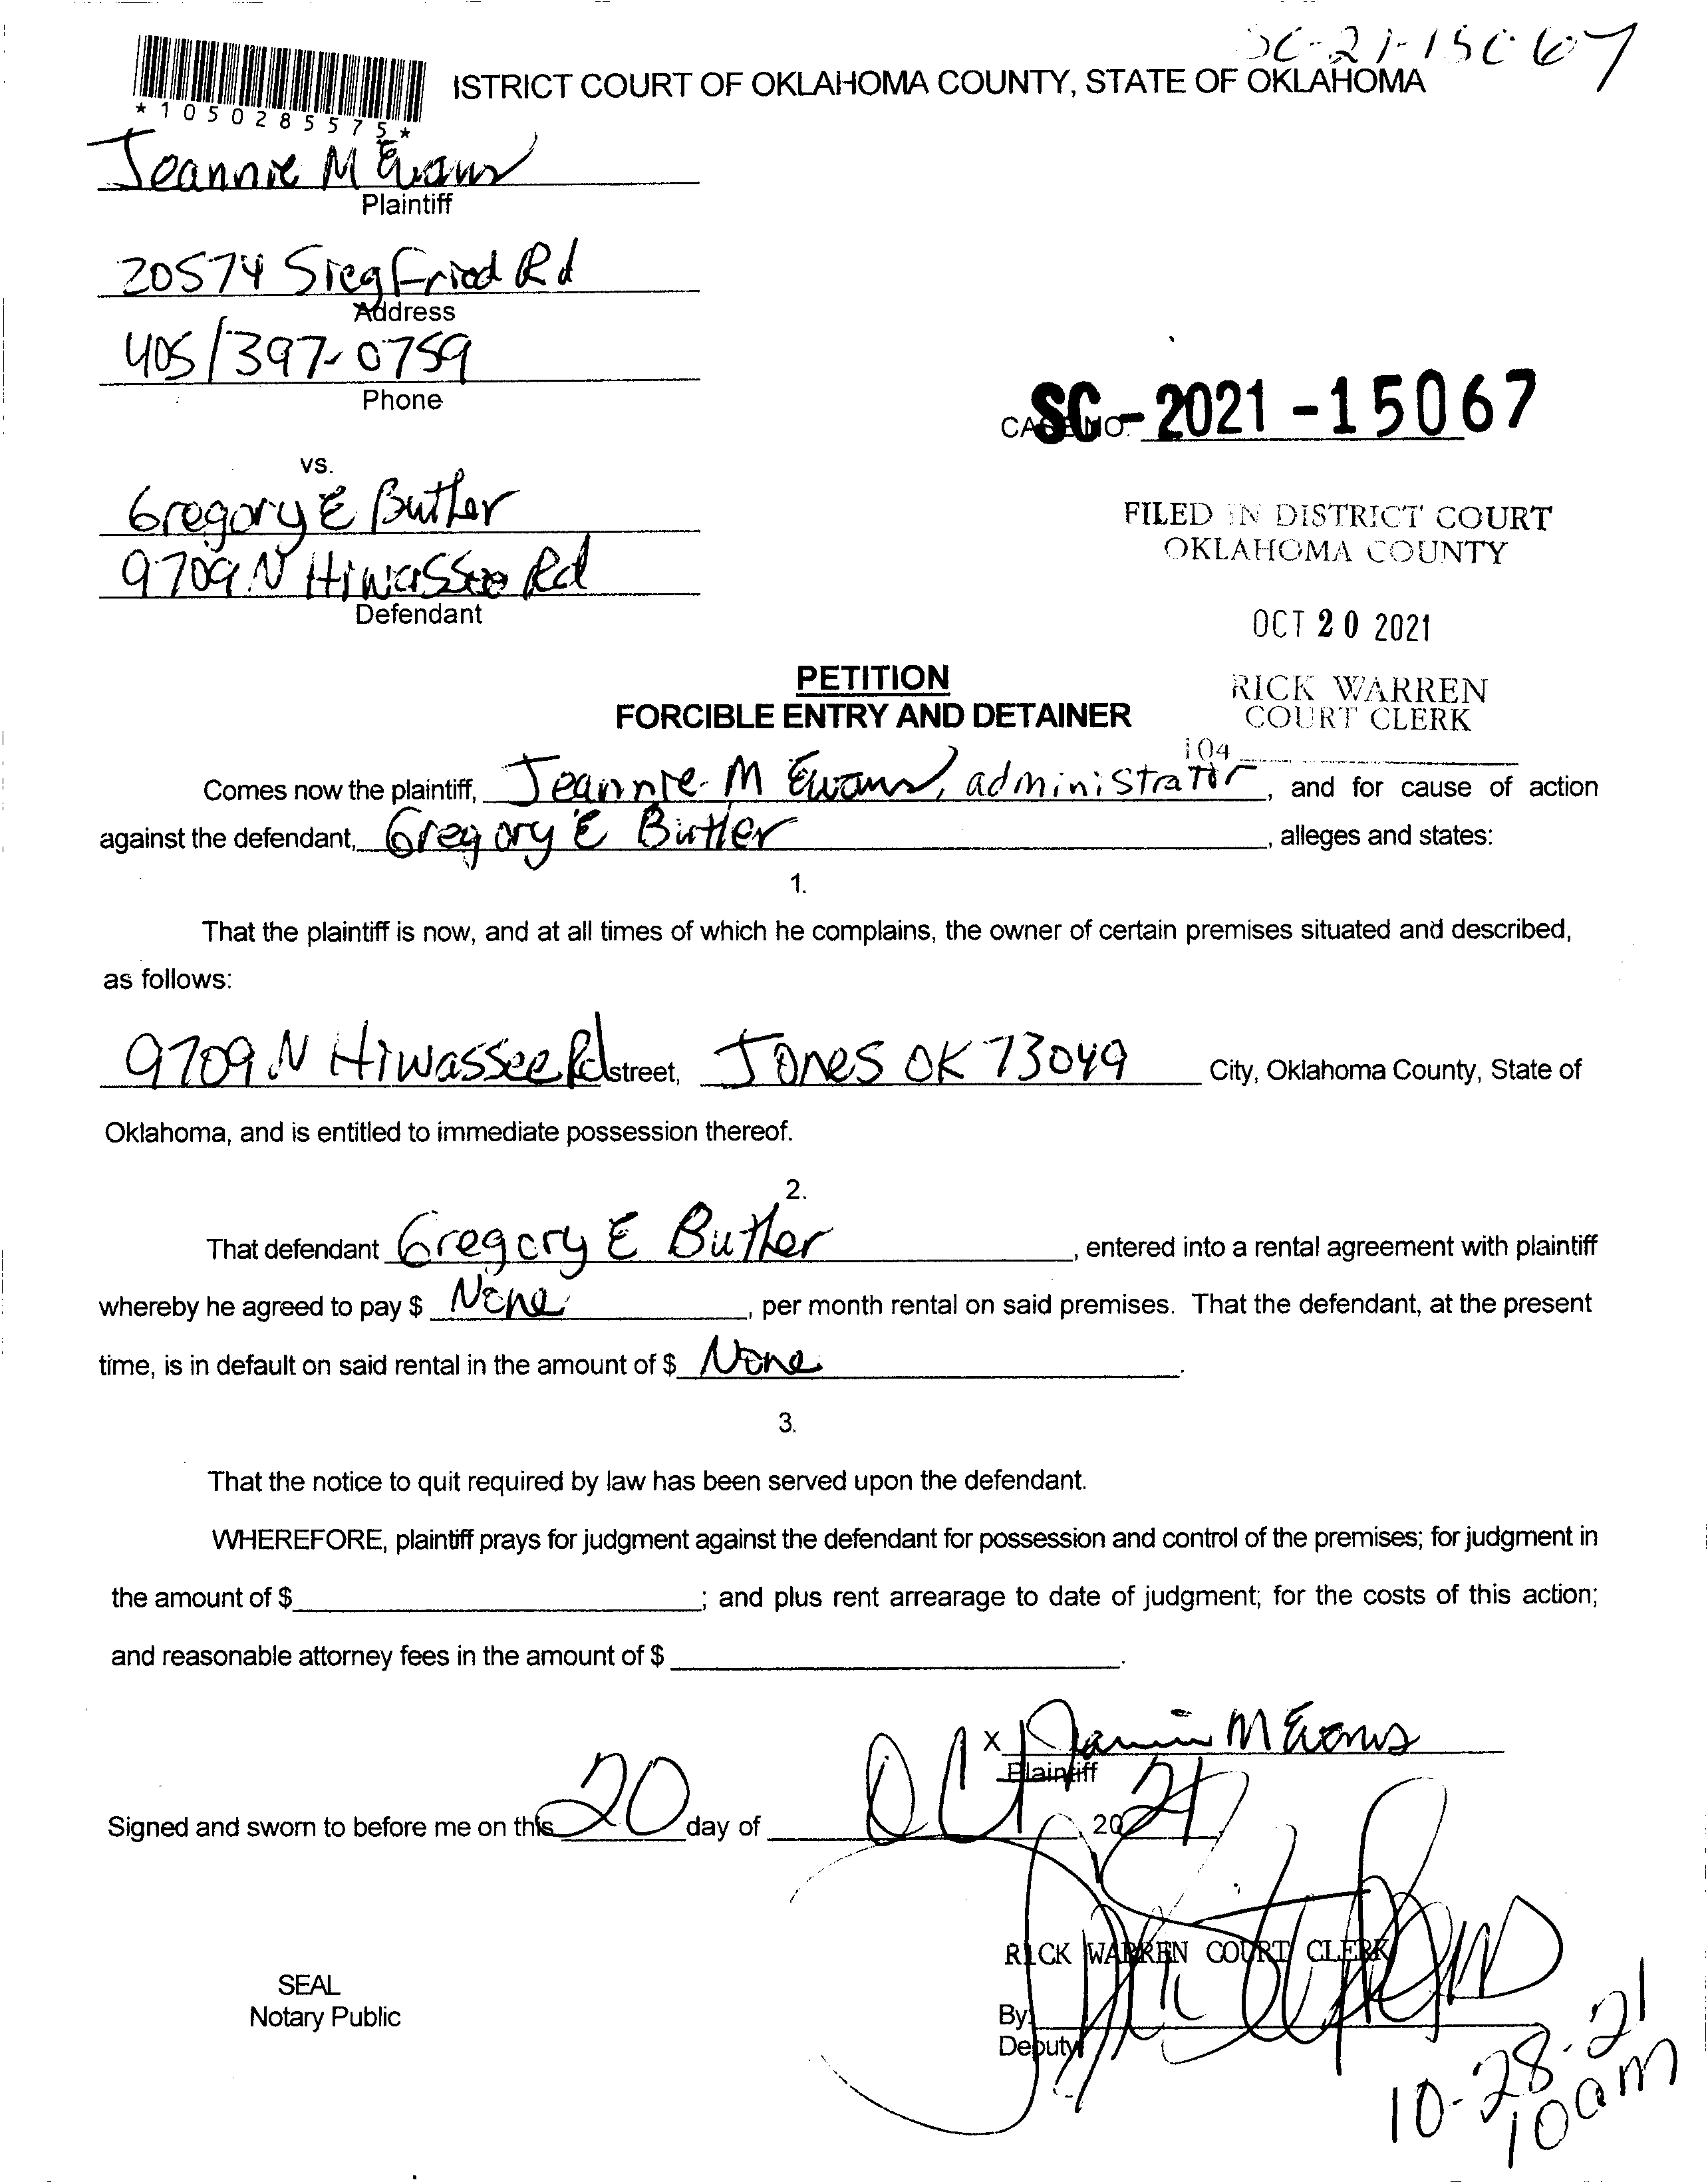 SC-21-15067
ISTRICT COURT OF OKLAHOMA COUNTY, STATE OF OKLAHOMA
*1050285575*
Jeannie M Evans
Plaintiff
20574 Siegfried Rd
Address
405/397-0759
Phone
CASE NO. SC-2021-15067
vs.
Gregory E Butler
9709 N Hiwassee Rd
Defendant
FILED IN DISTRICT COURT
OKLAHOMA COUNTY
OCT 20 2021
RICK WARREN
COURT CLERK
104
PETITION
FORCIBLE ENTRY AND DETAINER
Comes now the plaintiff, Jeannie M Evans, administrator, and for cause of action
against the defendant, Gregory E Butler, alleges and states:
1.
That the plaintiff is now, and at all times of which he complains, the owner of certain premises situated and described,
as follows:
9709 N Hiwassee Rd street, Jones OK 73049 City, Oklahoma County, State of
Oklahoma, and is entitled to immediate possession thereof.
2.
That defendant Gregory E Butler, entered into a rental agreement with plaintiff
whereby he agreed to pay $ None, per month rental on said premises. That the defendant, at the present
time, is in default on said rental in the amount of $ None.
3.
That the notice to quit required by law has been served upon the defendant.
WHEREFORE, plaintiff prays for judgment against the defendant for possession and control of the premises; for judgment in
the amount of $ ; and plus rent arrearage to date of judgment; for the costs of this action;
and reasonable attorney fees in the amount of $ .
x Jeannie M Evans
Plaintiff
Signed and sworn to before me on this 20 day of Oct, 2021
RICK WARREN COURT CLERK
SEAL
Notary Public
By:
Deputy
10-28-21
10am